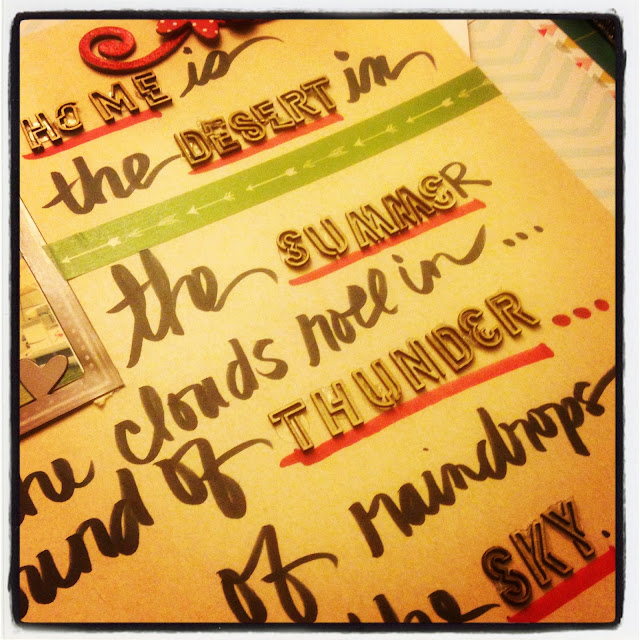 HOME is
the DESERT in
the SUMMER
he clouds roll in ...
ound of THUNDER ....
of raindrops
the SKY.